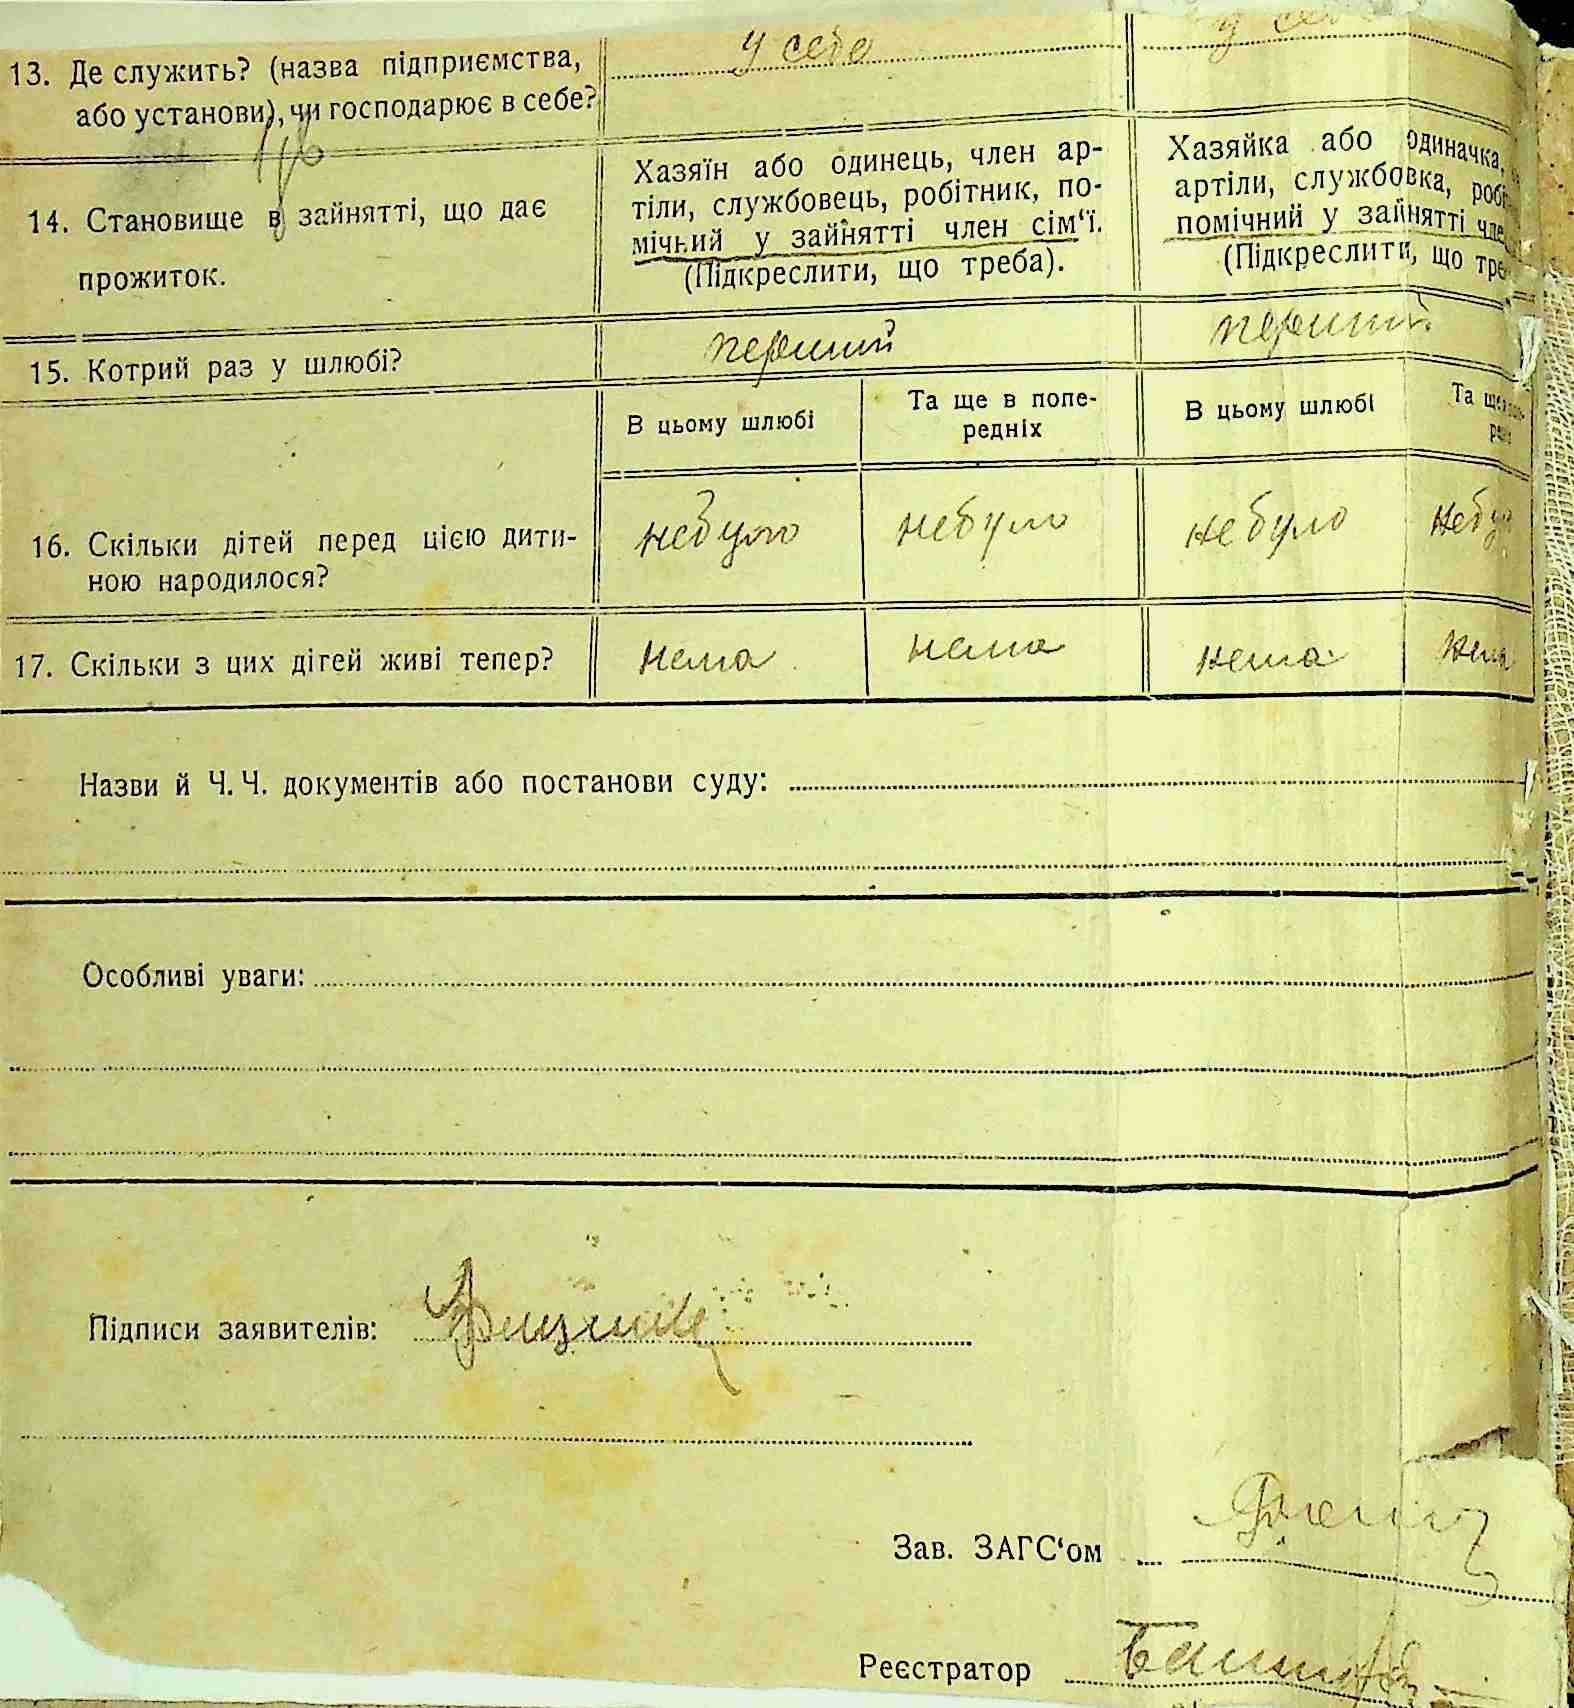 13. Де служить? (назва підприємства,
або установи), чи господарює в себе?
у себе
у себе
14. Становище в зайнятті, що дає
прожиток.
Хазяїн або одинець, член ар-
тіли, службовець, робітник, по-
мічний у зайнятті член сім‘ї.
(Підкреслити, що треба).
Хазяйка або одиначка,
артіли, службовка, робі
помічний у зайнятті чле
(Підкреслити, що тре
15. Котрий раз у шлюбі?
перший
перший
В цьому шлюбі
Та ще в попе-
редніх
В цьому шлюбі
Та ще
16. Скільки дітей перед цією дити-
ною народилося?
небуло
небуло
небуло
небуло
17. Скільки з цих дітей живі тепер?
нема
нема
нема
нема
Назви й Ч. Ч. документів або постанови суду:
Особливі уваги:
Підписи заявителів:
Зав. ЗАГС‘ом
Реєстратор